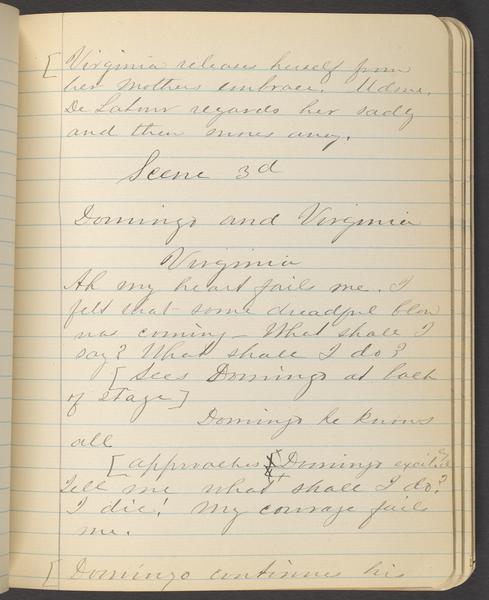 [ Virginia releases herself from
her mothers embrace. Mdme.
De Latour regards her sadly
and then moves away.
Scene 3d
Domingo and Virginia
Virginia
Ah my heart fails me. I
felt that some dreadful blow
was coming — What shall I
say? What shall I do?
[ Sees Domingo at back
of stage ]
Domingo he knows
all
[ approaches Domingo excitedly
Tell me what shall I do?
I die! My courage fails
me.
[ Domingo continues his